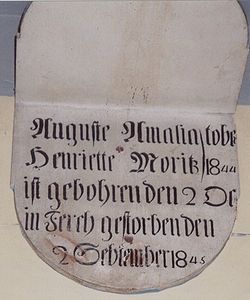 Auguste Amalia
Henriette Moritz
ist gebohren den 2 Oc
tobr
1844
in Ferch gestorben den
2 September 1845